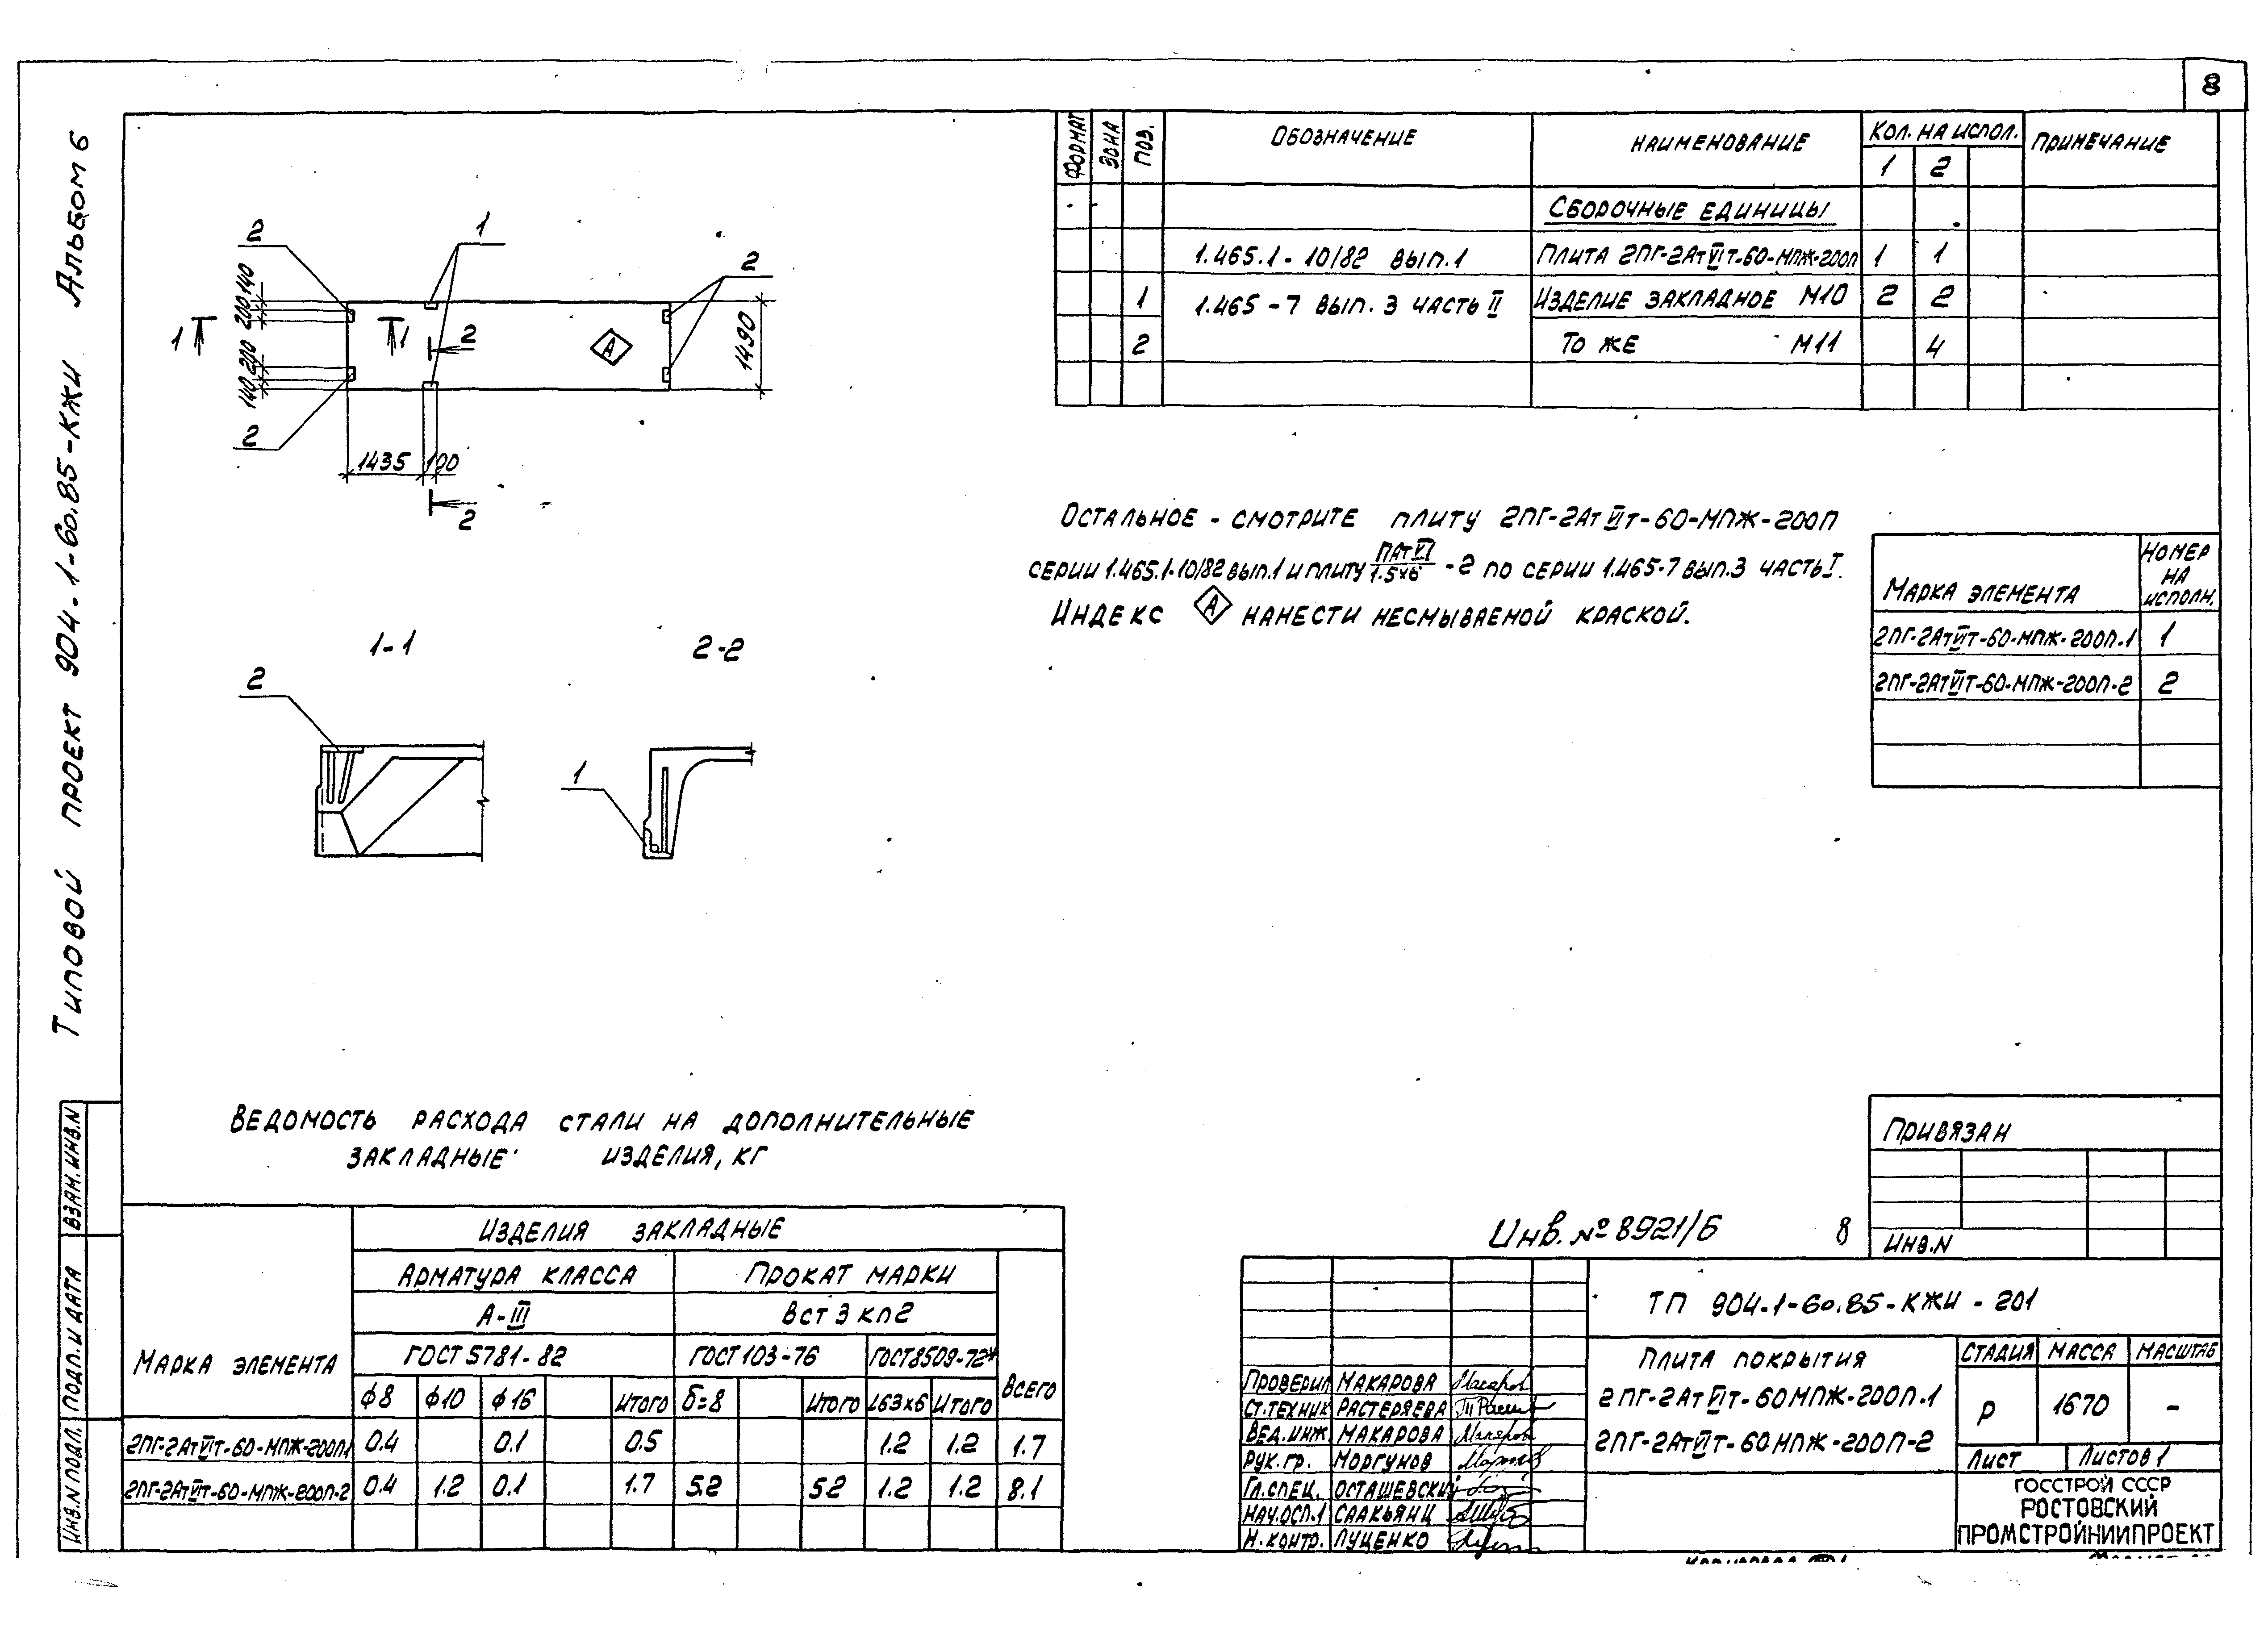 8
Типовой проект 904-1-60.85-КЖИ Альбом 6
Формат
Зона
Поз.
Обозначение
Наименование
Кол. на испол.
1 2
Примечание
Сборочные единицы
1.465.1-10/82 вып.1 Плита 2ПГ-2АтVIт-60-МПЖ-200П 1 1
1 1.465-7 вып. 3 часть II Изделие закладное М10 2 2
2 То же М11 4
2
1
2
140
200
200
140
1
1
2
А
1490
2
1435
100
2
Остальное - смотрите плиту 2ПГ-2АтVIт-60-МПЖ-200П
серии 1.465.1-10/82 вып.1 и плиту ПАтVI/1.5х6 -2 по серии 1.465-7 вып.3 часть I.
Индекс А нанести несмываемой краской.
Марка элемента
Номер на исполн.
2ПГ-2АтVIт-60-МПЖ-200П-1 1
2ПГ-2АтVIт-60-МПЖ-200П-2 2
1-1
2
2-2
1
Ведомость расхода стали на дополнительные
закладные изделия, кг
Марка элемента
Изделия закладные
Арматура класса
Прокат марки
Всего
А-III
Вст 3 кп2
ГОСТ 5781-82
ГОСТ 103-76
ГОСТ 8509-72*
ф8 ф10 ф16 Итого б=8 Итого L63х6 Итого
2ПГ-2АтVIт-60-МПЖ-200П-1 0.4 0.1 0.5 1.2 1.2 1.7
2ПГ-2АтVIт-60-МПЖ-200П-2 0.4 1.2 0.1 1.7 5.2 5.2 1.2 1.2 8.1
Взам. инв.N
Подп. и дата
Инв.N подл.
Привязан
Инв.N
Инв. № 8921/6 8
ТП 904-1-60.85-КЖИ-201
Плита покрытия
2ПГ-2АтVIт-60МПЖ-200П-1
2ПГ-2АтVIт-60МПЖ-200П-2
Стадия Масса Масштаб
Р 1670 -
Лист Листов 1
ГОССТРОЙ СССР
РОСТОВСКИЙ
ПРОМСТРОЙНИИПРОЕКТ
Проверил Макарова
Ст.техник Растеряева
Вед.инж Макарова
Рук. гр. Моргунов
Гл.спец. Осташевский
Нач.осп.1 Саакьянц
Н. контр. Луценко